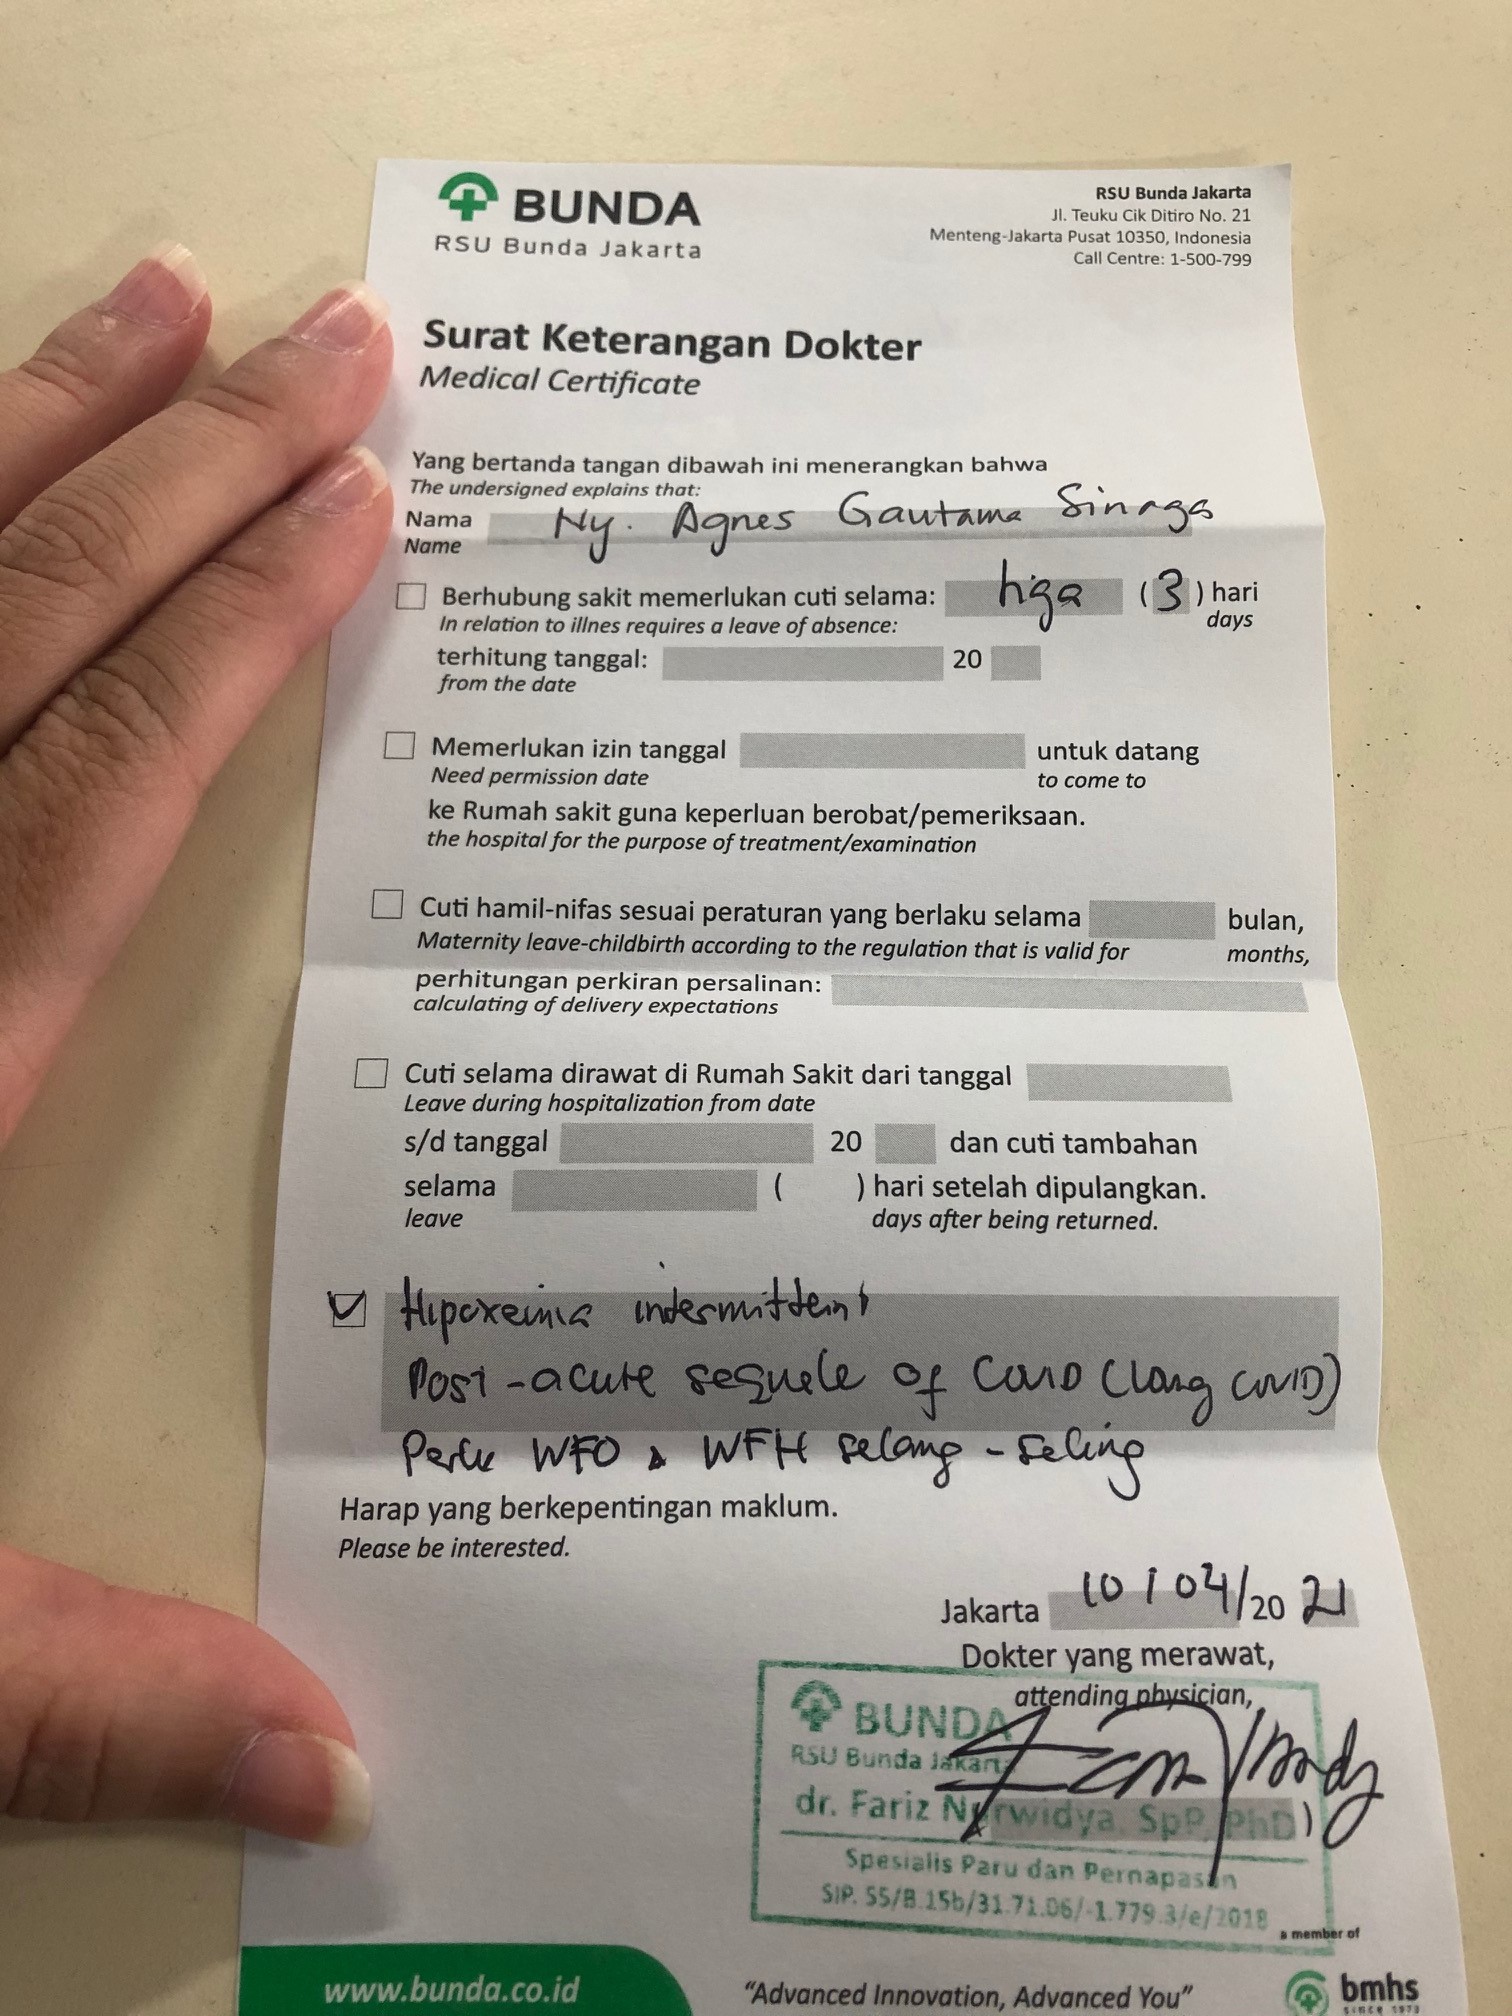 BUNDA
RSU Bunda Jakarta
RSU Bunda Jakarta
Jl. Teuku Cik Ditiro No. 21
Menteng-Jakarta Pusat 10350, Indonesia
Call Centre: 1-500-799
Surat Keterangan Dokter
Medical Certificate
Yang bertanda tangan dibawah ini menerangkan bahwa
The undersigned explains that:
Nama Ny. Agnes Gautama Sinaga
Name
Berhubung sakit memerlukan cuti selama: tiga (3) hari
In relation to illnes requires a leave of absence: days
terhitung tanggal: 20
from the date
Memerlukan izin tanggal untuk datang
Need permission date to come to
ke Rumah sakit guna keperluan berobat/pemeriksaan.
the hospital for the purpose of treatment/examination
Cuti hamil-nifas sesuai peraturan yang berlaku selama bulan,
Maternity leave-childbirth according to the regulation that is valid for months,
perhitungan perkiran persalinan:
calculating of delivery expectations
Cuti selama dirawat di Rumah Sakit dari tanggal
Leave during hospitalization from date
s/d tanggal 20 dan cuti tambahan
selama ( ) hari setelah dipulangkan.
leave days after being returned.
Hipoxemia intermittent
Post-acute sequele of Covid (long covid)
Perlu WFO & WFH selang-seling
Harap yang berkepentingan maklum.
Please be interested.
Jakarta 10/04/2021
Dokter yang merawat,
attending physician,
BUNDA
RSU Bunda Jakarta
dr. Fariz Nurwidya, SpP, PhD)
Spesialis Paru dan Pernapasan
SIP. 55/B.15b/31.71.06/-1.779.3/e/2018
a member of
www.bunda.co.id
"Advanced Innovation, Advanced You"
bmhs
SINCE 1973